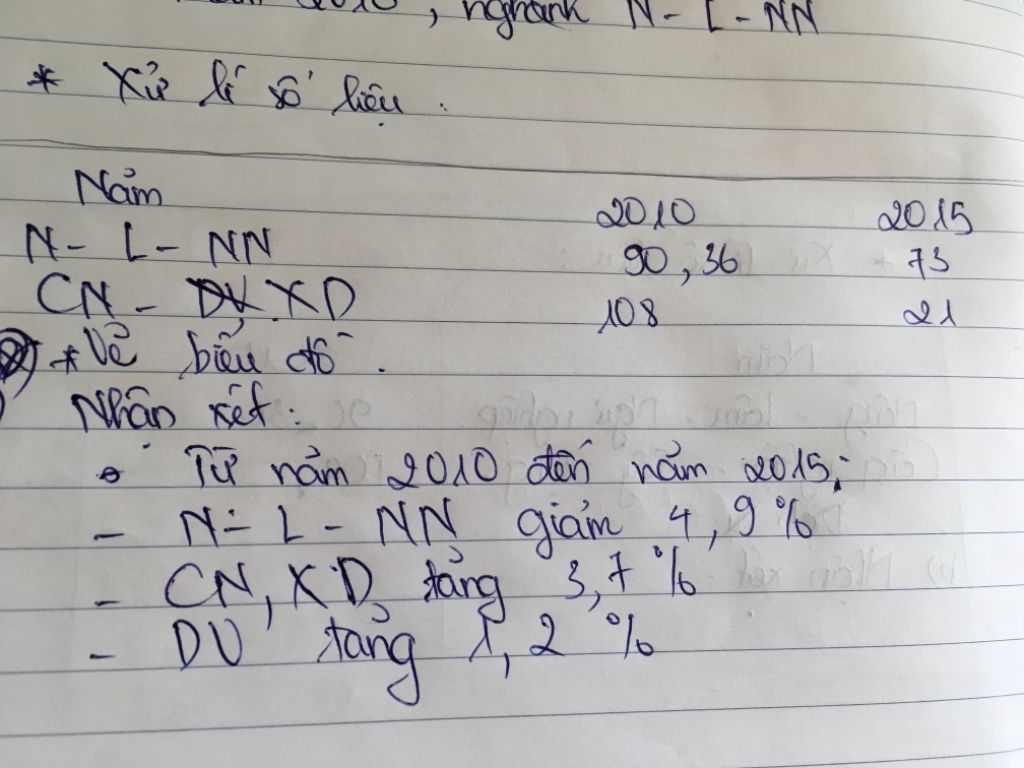 2010, nghành N - L - NN
* Xử lí số liệu.
Năm 2010 2015
N - L - NN 90,36 73
CN - XD 108 21
* Vẽ biểu đồ.
Nhận xét:
Từ năm 2010 đến năm 2015:
- N - L - NN giảm 4,9%
- CN, XD, tăng 3,7%
- DV tăng 1,2%